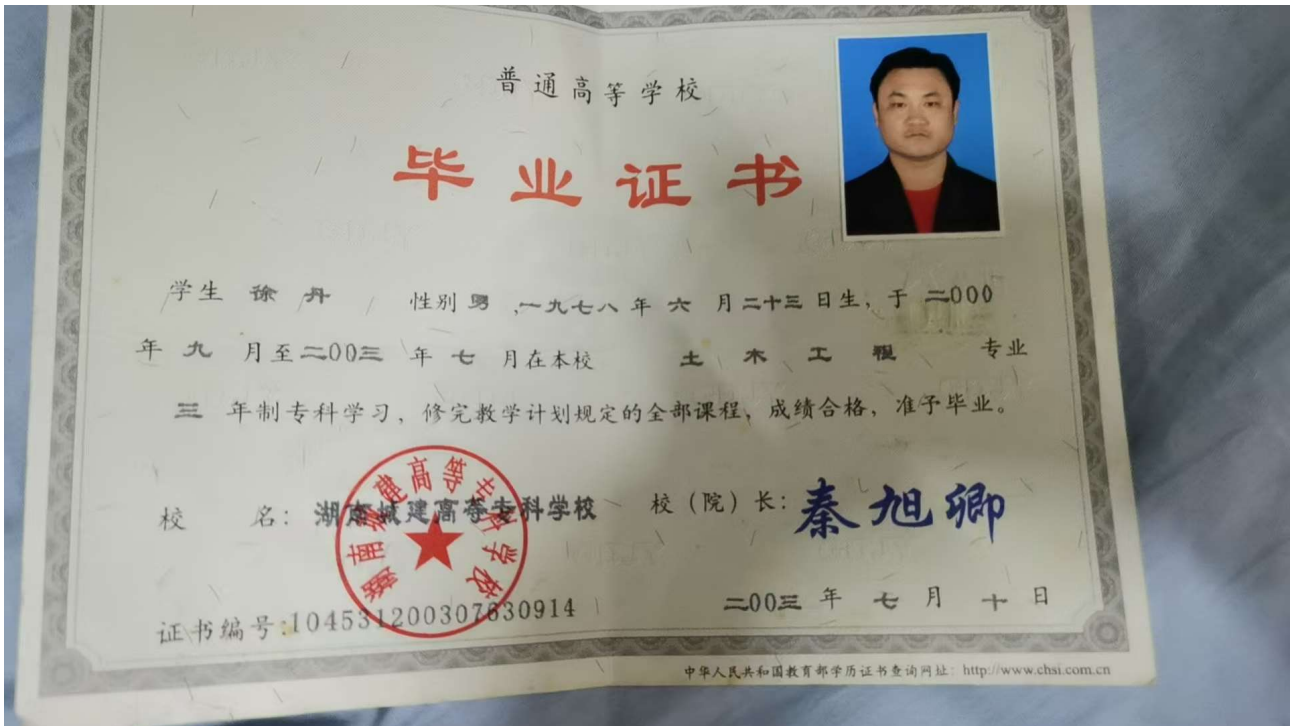 普通高等学校
毕业证书
学生 徐丹 性别 男 ,一九七八年 六 月二十三日生，于 二000
年 九 月至二00三 年 七 月在本校 土木工程 专业
三 年制专科学习，修完教学计划规定的全部课程，成绩合格，准予毕业。
校 名：湖南城建高等专科学校 校（院）长：秦旭卿
湖南城建高等专科学校
证书编号:104531200307630914 二00三 年 七 月 十 日
中华人民共和国教育部学历证书查询网址：http://www.chsi.com.cn